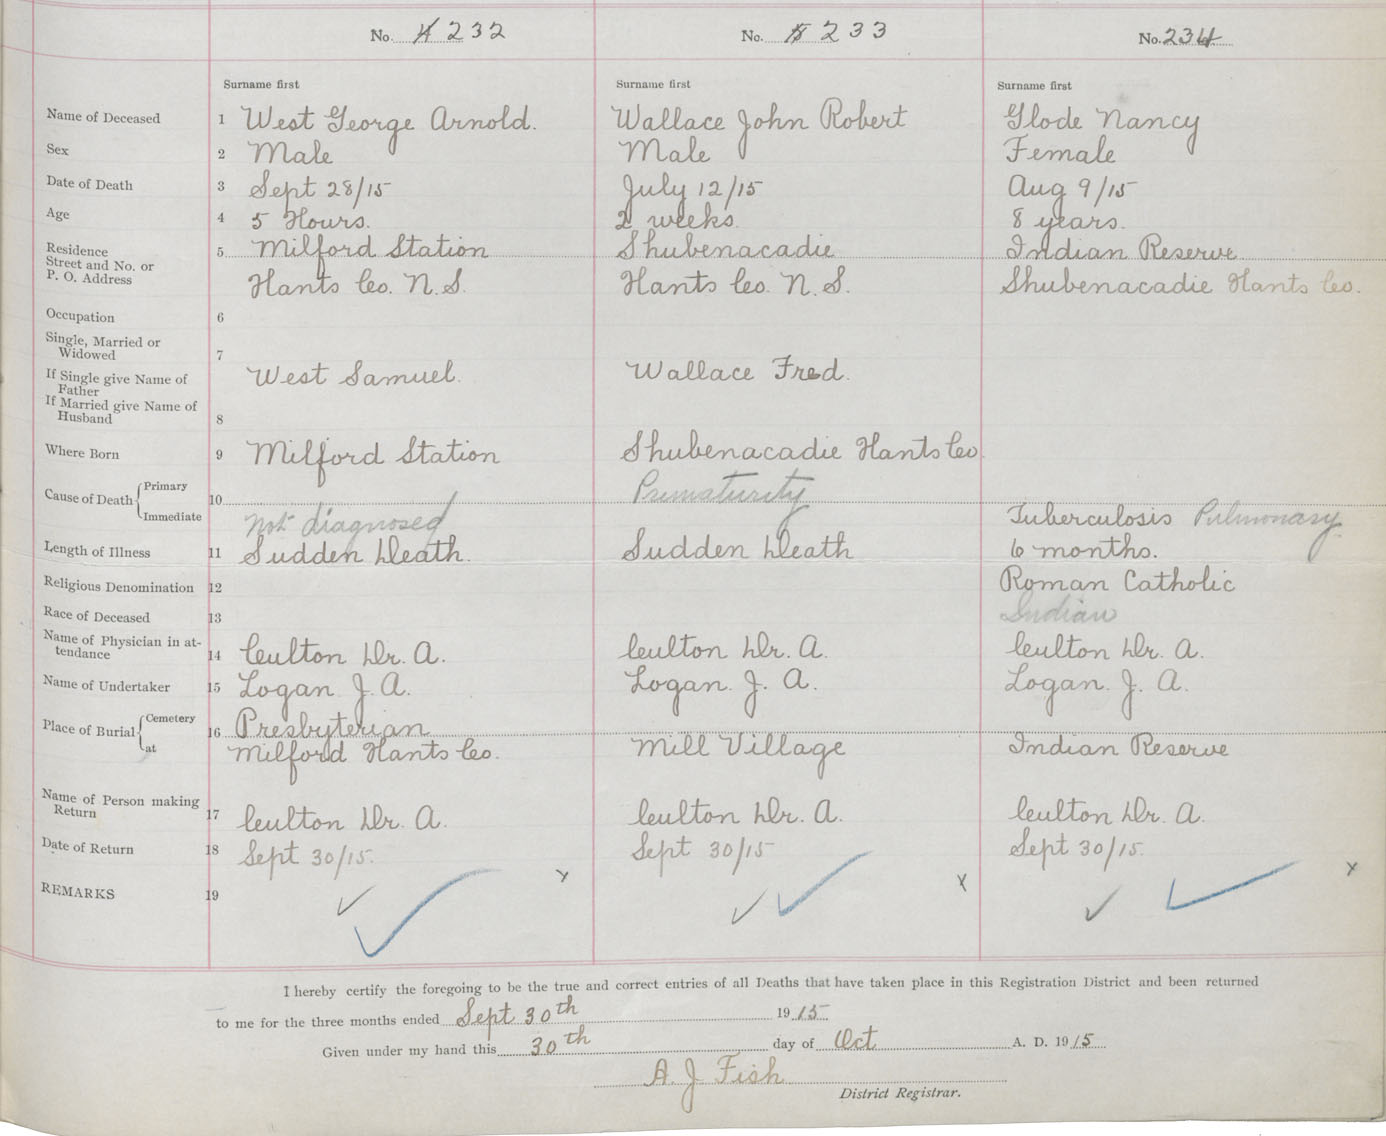 No. 4 232 No. 5 233 No. 234
Surname first Surname first Surname first
Name of Deceased 1 West George Arnold. Wallace John Robert Glode Nancy
Sex 2 Male Male Female
Date of Death 3 Sept 28/15 July 12/15 Aug 9/15
Age 4 5 Hours. 2 weeks. 8 years.
Residence 5 Milford Station Shubenacadie Indian Reserve
Street and No. or
P. O. Address Hants Co. N.S. Hants Co. N.S. Shubenacadie Hants Co.
Occupation 6
Single, Married or
Widowed 7
If Single give Name of
Father West Samuel. Wallace Fred.
If Married give Name of
Husband 8
Where Born 9 Milford Station Shubenacadie Hants Co
Cause of Death Primary 10 Prematurity
Immediate Not diagnosed Tuberculosis Pulmonary.
Length of Illness 11 Sudden Death. Sudden Death 6 months.
Religious Denomination 12 Roman Catholic
Race of Deceased 13 Indian
Name of Physician in at-
tendance 14 Culton Dr. A. Culton Dr. A. Culton Dr. A.
Name of Undertaker 15 Logan J. A. Logan. J. A. Logan. J. A.
Place of Burial Cemetery 16 Presbyterian
at Milford Hants Co. Mill Village Indian Reserve
Name of Person making
Return 17 Culton Dr. A. Culton Dr. A. Culton Dr. A.
Date of Return 18 Sept 30/15. Sept 30/15 Sept 30/15.
REMARKS 19 x x x
I hereby certify the foregoing to be the true and correct entries of all Deaths that have taken place in this Registration District and been returned
to me for the three months ended Sept 30th 1915
Given under my hand this 30th day of Oct A. D. 1915
A. J Fish
District Registrar.